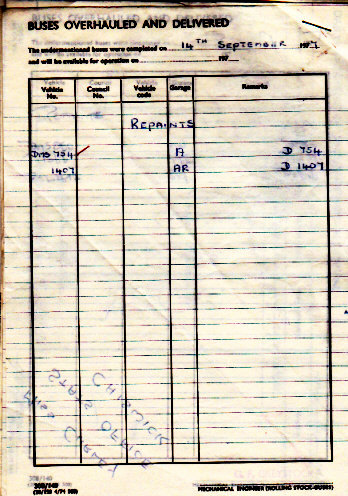 BUSES OVERHAULED AND DELIVERED
The undermentioned buses were completed on 14TH SEPTEMBER 197
and will be available for operation on 197
Vehicle No. Council No. Vehicle code Garage Remarks
REPAINTS
DMS 754 A D 754
1407 AR D 1407
CHISWICK
STATS OFFICE
MISS CURLEY
MECHANICAL ENGINEER (ROLLING STOCK-BUSES)